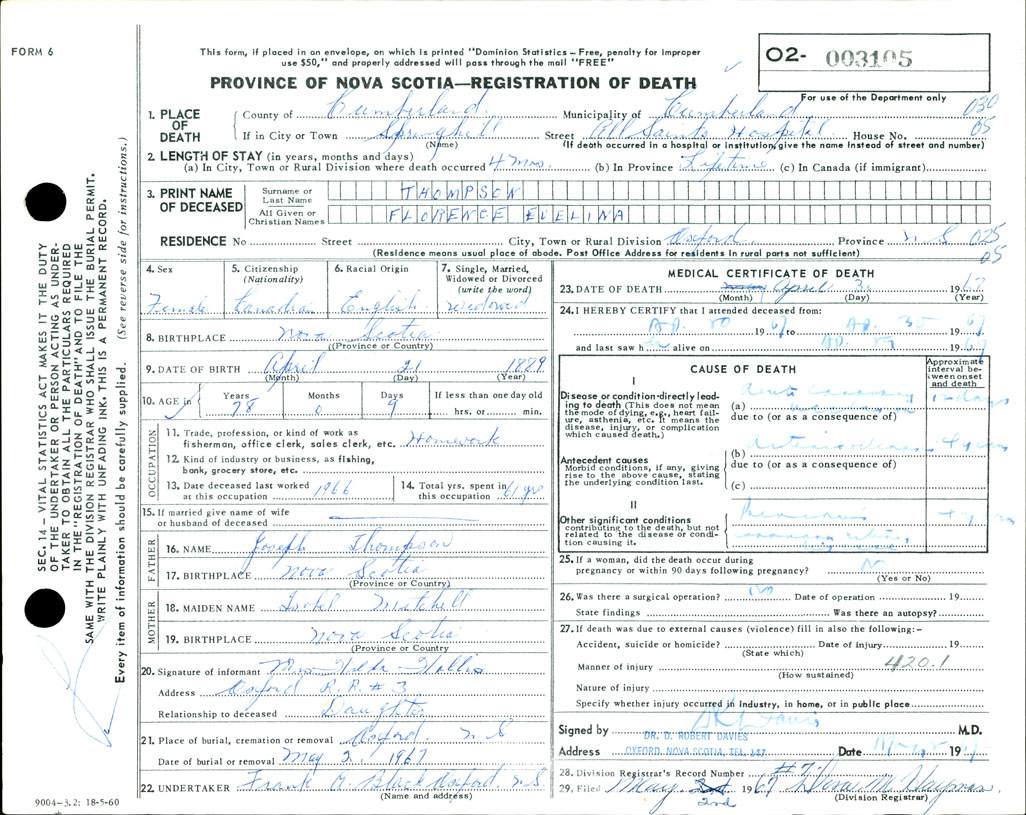 FORM 6
This form, if placed in an envelope, on which is printed "Dominion Statistics – Free, penalty for improper
use $50," and properly addressed will pass through the mail "FREE"
PROVINCE OF NOVA SCOTIA—REGISTRATION OF DEATH
02- 003105
For use of the Department only
1. PLACE OF DEATH
County of Cumberland Municipality of Cumberland 030
If in City or Town Springhill Street All Saints Hospital House No. 05
(Name) (If death occurred in a hospital or institution, give the name instead of street and number)
2. LENGTH OF STAY (in years, months and days)
(a) In City, Town or Rural Division where death occurred 4 mos. (b) In Province Lifetime (c) In Canada (if immigrant)
3. PRINT NAME OF DECEASED
Surname or Last Name THOMPSON
All Given or Christian Names FLORENCE EVELINA
RESIDENCE No Street City, Town or Rural Division Oxford Province N S 025
05
(Residence means usual place of abode. Post Office Address for residents in rural parts not sufficient)
4. Sex Female
5. Citizenship (Nationality) Canadian
6. Racial Origin English
7. Single, Married, Widowed or Divorced (write the word) Widowed
8. BIRTHPLACE Nova Scotia
(Province or Country)
9. DATE OF BIRTH April 21 1889
(Month) (Day) (Year)
10. AGE in Years 78 Months 0 Days 9 If less than one day old hrs. or min.
OCCUPATION
11. Trade, profession, or kind of work as
fisherman, office clerk, sales clerk, etc. Homework
12. Kind of industry or business, as fishing,
bank, grocery store, etc
13. Date deceased last worked at this occupation 1966
14. Total yrs. spent in this occupation 61 yrs
15. If married give name of wife
or husband of deceased
FATHER
16. NAME Joseph Thompson
17. BIRTHPLACE Nova Scotia
(Province or Country)
MOTHER
18. MAIDEN NAME Isabel Mitchell
19. BIRTHPLACE Nova Scotia
(Province or Country)
20. Signature of informant Mrs Hilda Hollis
Address Oxford R.R. # 3
Relationship to deceased Daughter
21. Place of burial, cremation or removal Oxford. N S
Date of burial or removal May 2, 1967
22. UNDERTAKER Frank M. Black Oxford, N.S.
(Name and address)
MEDICAL CERTIFICATE OF DEATH
23. DATE OF DEATH April 30 1967
(Month) (Day) (Year)
24. I HEREBY CERTIFY that I attended deceased from:
1967 to 1967
and last saw h alive on 1967
CAUSE OF DEATH
Approximate interval between onset and death
I
Disease or condition directly leading to death (This does not mean the mode of dying, e.g., heart failure, asthenia, etc. It means the disease, injury, or complication which caused death.)
(a)
days
due to (or as a consequence of)
Antecedent causes
Morbid conditions, if any, giving rise to the above cause, stating the underlying condition last.
(b)
due to (or as a consequence of)
(c)
II
Other significant conditions contributing to the death, but not related to the disease or condition causing it.
25. If a woman, did the death occur during
pregnancy or within 90 days following pregnancy? No
(Yes or No)
26. Was there a surgical operation? No Date of operation 19
State findings Was there an autopsy?
27. If death was due to external causes (violence) fill in also the following:–
Accident, suicide or homicide? Date of injury 19
(State which)
Manner of injury 420.1
(How sustained)
Nature of injury
Specify whether injury occurred in industry, in home, or in public place
Signed by M.D.
DR. D. ROBERT DAVIES
Address OXFORD, NOVA SCOTIA, TEL. 147 Date 19
28. Division Registrar's Record Number #7
29. Filed May 2nd 1967
(Division Registrar)
SEC. 14 – VITAL STATISTICS ACT MAKES IT THE DUTY
OF THE UNDERTAKER OR PERSON ACTING AS UNDER-
TAKER TO OBTAIN ALL THE PARTICULARS REQUIRED
IN THE "REGISTRATION OF DEATH" AND TO FILE THE
SAME WITH THE DIVISION REGISTRAR WHO SHALL ISSUE THE BURIAL PERMIT.
WRITE PLAINLY WITH UNFADING INK. THIS IS A PERMANENT RECORD.
Every item of information should be carefully supplied. (See reverse side for instructions.)
9004–3.2: 18-5-60